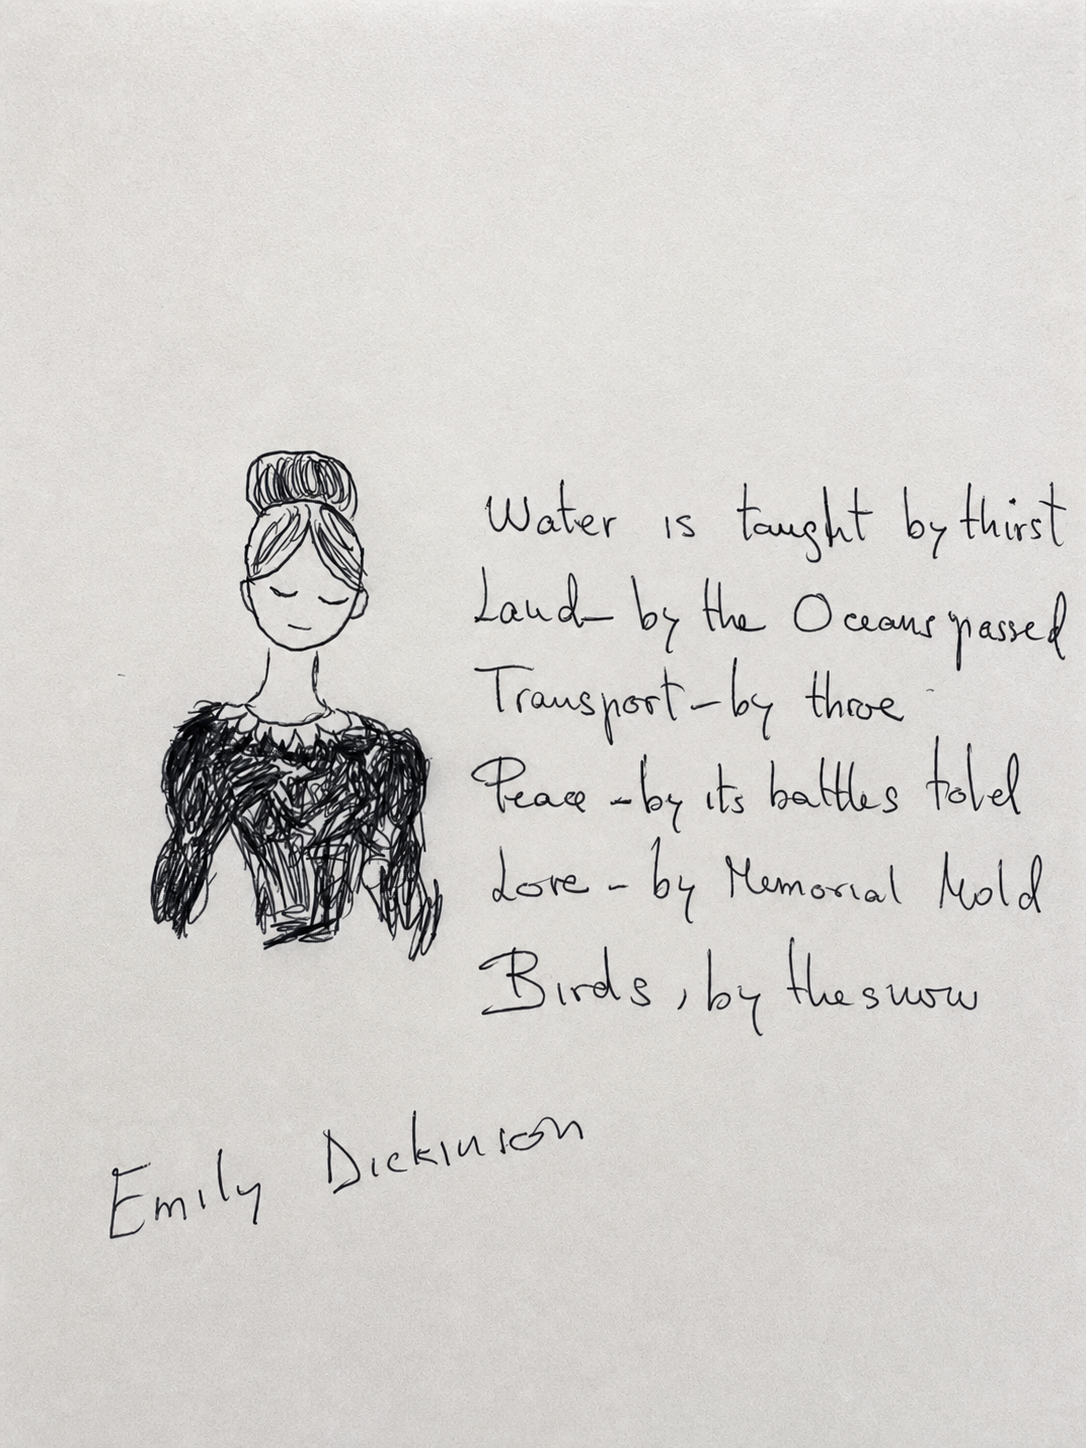 Water is taught by thirst
Land - by the Oceans passed
Transport - by throe
Peace - by its battles told
Love - by Memorial Mold
Birds, by the snow
Emily Dickinson